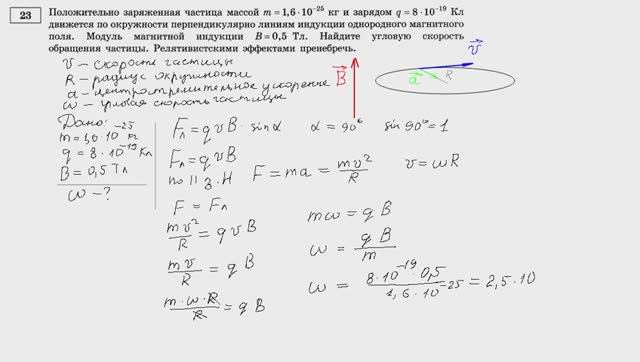 23
Положительно заряженная частица массой m = 1,6 · 10⁻²⁵ кг и зарядом q = 8 · 10⁻¹⁹ Кл
движется по окружности перпендикулярно линиям индукции однородного магнитного
поля. Модуль магнитной индукции B = 0,5 Тл. Найдите угловую скорость
обращения частицы. Релятивистскими эффектами пренебречь.
v – скорость частицы
R – радиус окружности
a – центростремительное ускорение
ω – угловая скорость частицы
B
v
a
R
Дано:
m = 1,6 · 10⁻²⁵ кг
q = 8 · 10⁻¹⁹ Кл
B = 0,5 Тл
ω – ?
Fл = q v B · sin α α = 90° sin 90° = 1
Fл = q v B
по II з. Н F = ma = mv²/R v = ωR
F = Fл
mv²/R = q v B
mv/R = q B
m · ω · R/R = q B
mω = q B
ω = q B/m
ω = 8 · 10⁻¹⁹ · 0,5/1,6 · 10⁻²⁵ = 2,5 · 10